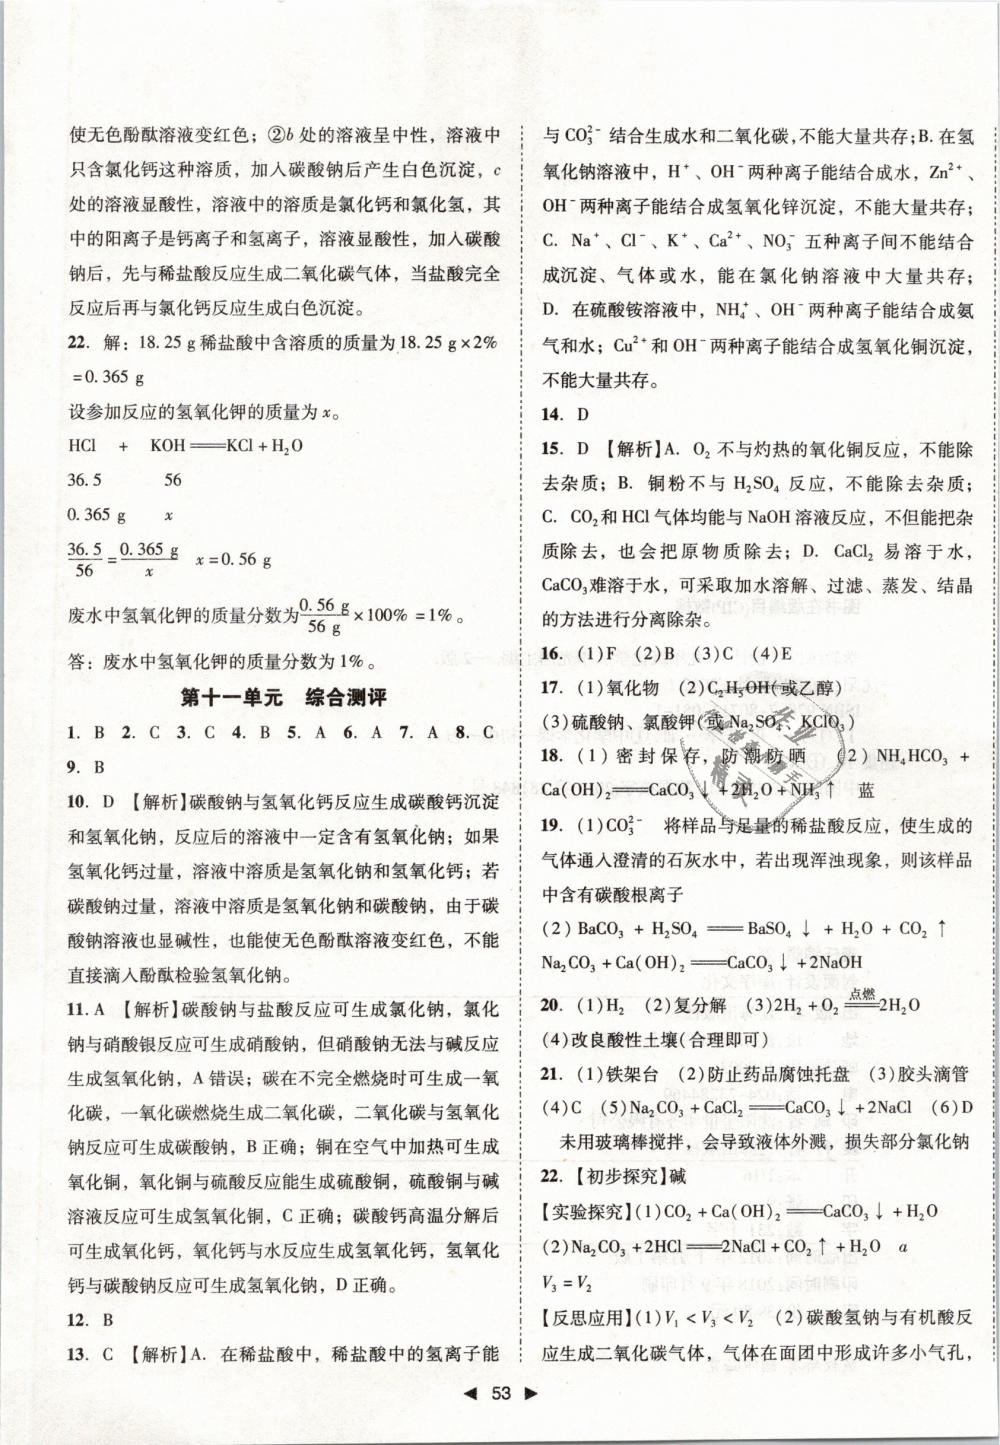 使无色酚酞溶液变红色；②b 处的溶液呈中性，溶液中
只含氯化钙这种溶质，加入碳酸钠后产生白色沉淀，c
处的溶液显酸性，溶液中的溶质是氯化钙和氯化氢，其
中的阳离子是钙离子和氢离子，溶液显酸性，加入碳酸
钠后，先与稀盐酸反应生成二氧化碳气体，当盐酸完全
反应后再与氯化钙反应生成白色沉淀。
22. 解：18.25 g稀盐酸中含溶质的质量为18.25 g×2%
=0.365 g
设参加反应的氢氧化钾的质量为x。
HCl + KOH══KCl+H₂O
36.5 56
0.365 g x
36.5/56=0.365 g/x x=0.56 g
废水中氢氧化钾的质量分数为0.56 g/56 g×100%=1%。
答：废水中氢氧化钾的质量分数为1%。
第十一单元 综合测评
1. B 2. C 3. C 4. B 5. A 6. A 7. A 8. C
9. B
10. D 【解析】碳酸钠与氢氧化钙反应生成碳酸钙沉淀
和氢氧化钠，反应后的溶液中一定含有氢氧化钠；如果
氢氧化钙过量，溶液中溶质是氢氧化钠和氢氧化钙；若
碳酸钠过量，溶液中溶质是氢氧化钠和碳酸钠，由于碳
酸钠溶液也显碱性，也能使无色酚酞溶液变红色，不能
直接滴入酚酞检验氢氧化钠。
11. A 【解析】碳酸钠与盐酸反应可生成氯化钠，氯化
钠与硝酸银反应可生成硝酸钠，但硝酸钠无法与碱反应
生成氢氧化钠，A 错误；碳在不完全燃烧时可生成一氧
化碳，一氧化碳燃烧生成二氧化碳，二氧化碳与氢氧化
钠反应可生成碳酸钠，B 正确；铜在空气中加热可生成
氧化铜，氧化铜与硫酸反应能生成硫酸铜，硫酸铜与碱
溶液反应可生成氢氧化铜，C 正确；碳酸钙高温分解后
可生成氧化钙，氧化钙与水反应生成氢氧化钙，氢氧化
钙与碳酸钠反应可生成氢氧化钠，D 正确。
12. B
13. C 【解析】A. 在稀盐酸中，稀盐酸中的氢离子能
与 CO₃²⁻ 结合生成水和二氧化碳,不能大量共存；B. 在氢
氧化钠溶液中，H⁺、OH⁻两种离子能结合成水，Zn²⁺、
OH⁻两种离子能结合成氢氧化锌沉淀，不能大量共存；
C. Na⁺、Cl⁻、K⁺、Ca²⁺、NO₃⁻ 五种离子间不能结合
成沉淀、气体或水，能在氯化钠溶液中大量共存；
D. 在硫酸铵溶液中，NH₄⁺、OH⁻两种离子能结合成氨
气和水；Cu²⁺和OH⁻两种离子能结合成氢氧化铜沉淀，
不能大量共存。
14. D
15. D 【解析】A. O₂ 不与灼热的氧化铜反应，不能除
去杂质；B. 铜粉不与 H₂SO₄ 反应，不能除去杂质；
C. CO₂和HCl气体均能与NaOH溶液反应，不但能把杂
质除去，也会把原物质除去；D. CaCl₂ 易溶于水，
CaCO₃难溶于水，可采取加水溶解、过滤、蒸发、结晶
的方法进行分离除杂。
16. (1)F (2)B (3)C (4)E
17. (1)氧化物 (2)C₂H₅OH(或乙醇)
(3)硫酸钠、氯酸钾(或 Na₂SO₄、KClO₃)
18. (1)密封保存，防潮防晒 (2)NH₄HCO₃ +
Ca(OH)₂══CaCO₃↓+2H₂O+NH₃↑ 蓝
19. (1)CO₃²⁻ 将样品与足量的稀盐酸反应，使生成的
气体通入澄清的石灰水中，若出现浑浊现象，则该样品
中含有碳酸根离子
(2) BaCO₃ + H₂SO₄ ══ BaSO₄↓ + H₂O + CO₂↑
Na₂CO₃+Ca(OH)₂══CaCO₃↓+2NaOH
20. (1)H₂ (2)复分解 (3)2H₂+O₂ 点燃══ 2H₂O
(4)改良酸性土壤(合理即可)
21. (1)铁架台 (2)防止药品腐蚀托盘 (3)胶头滴管
(4)C (5)Na₂CO₃+CaCl₂══CaCO₃↓+2NaCl (6)D
未用玻璃棒搅拌，会导致液体外溅，损失部分氯化钠
22. 【初步探究】碱
【实验探究】(1)CO₂+Ca(OH)₂══CaCO₃↓+H₂O
(2)Na₂CO₃+2HCl══2NaCl+CO₂↑+H₂O a
V₃=V₂
【反思应用】(1)V₁<V₃<V₂ (2)碳酸氢钠与有机酸反
应生成二氧化碳气体，气体在面团中形成许多小气孔，
◀ 53 ▶